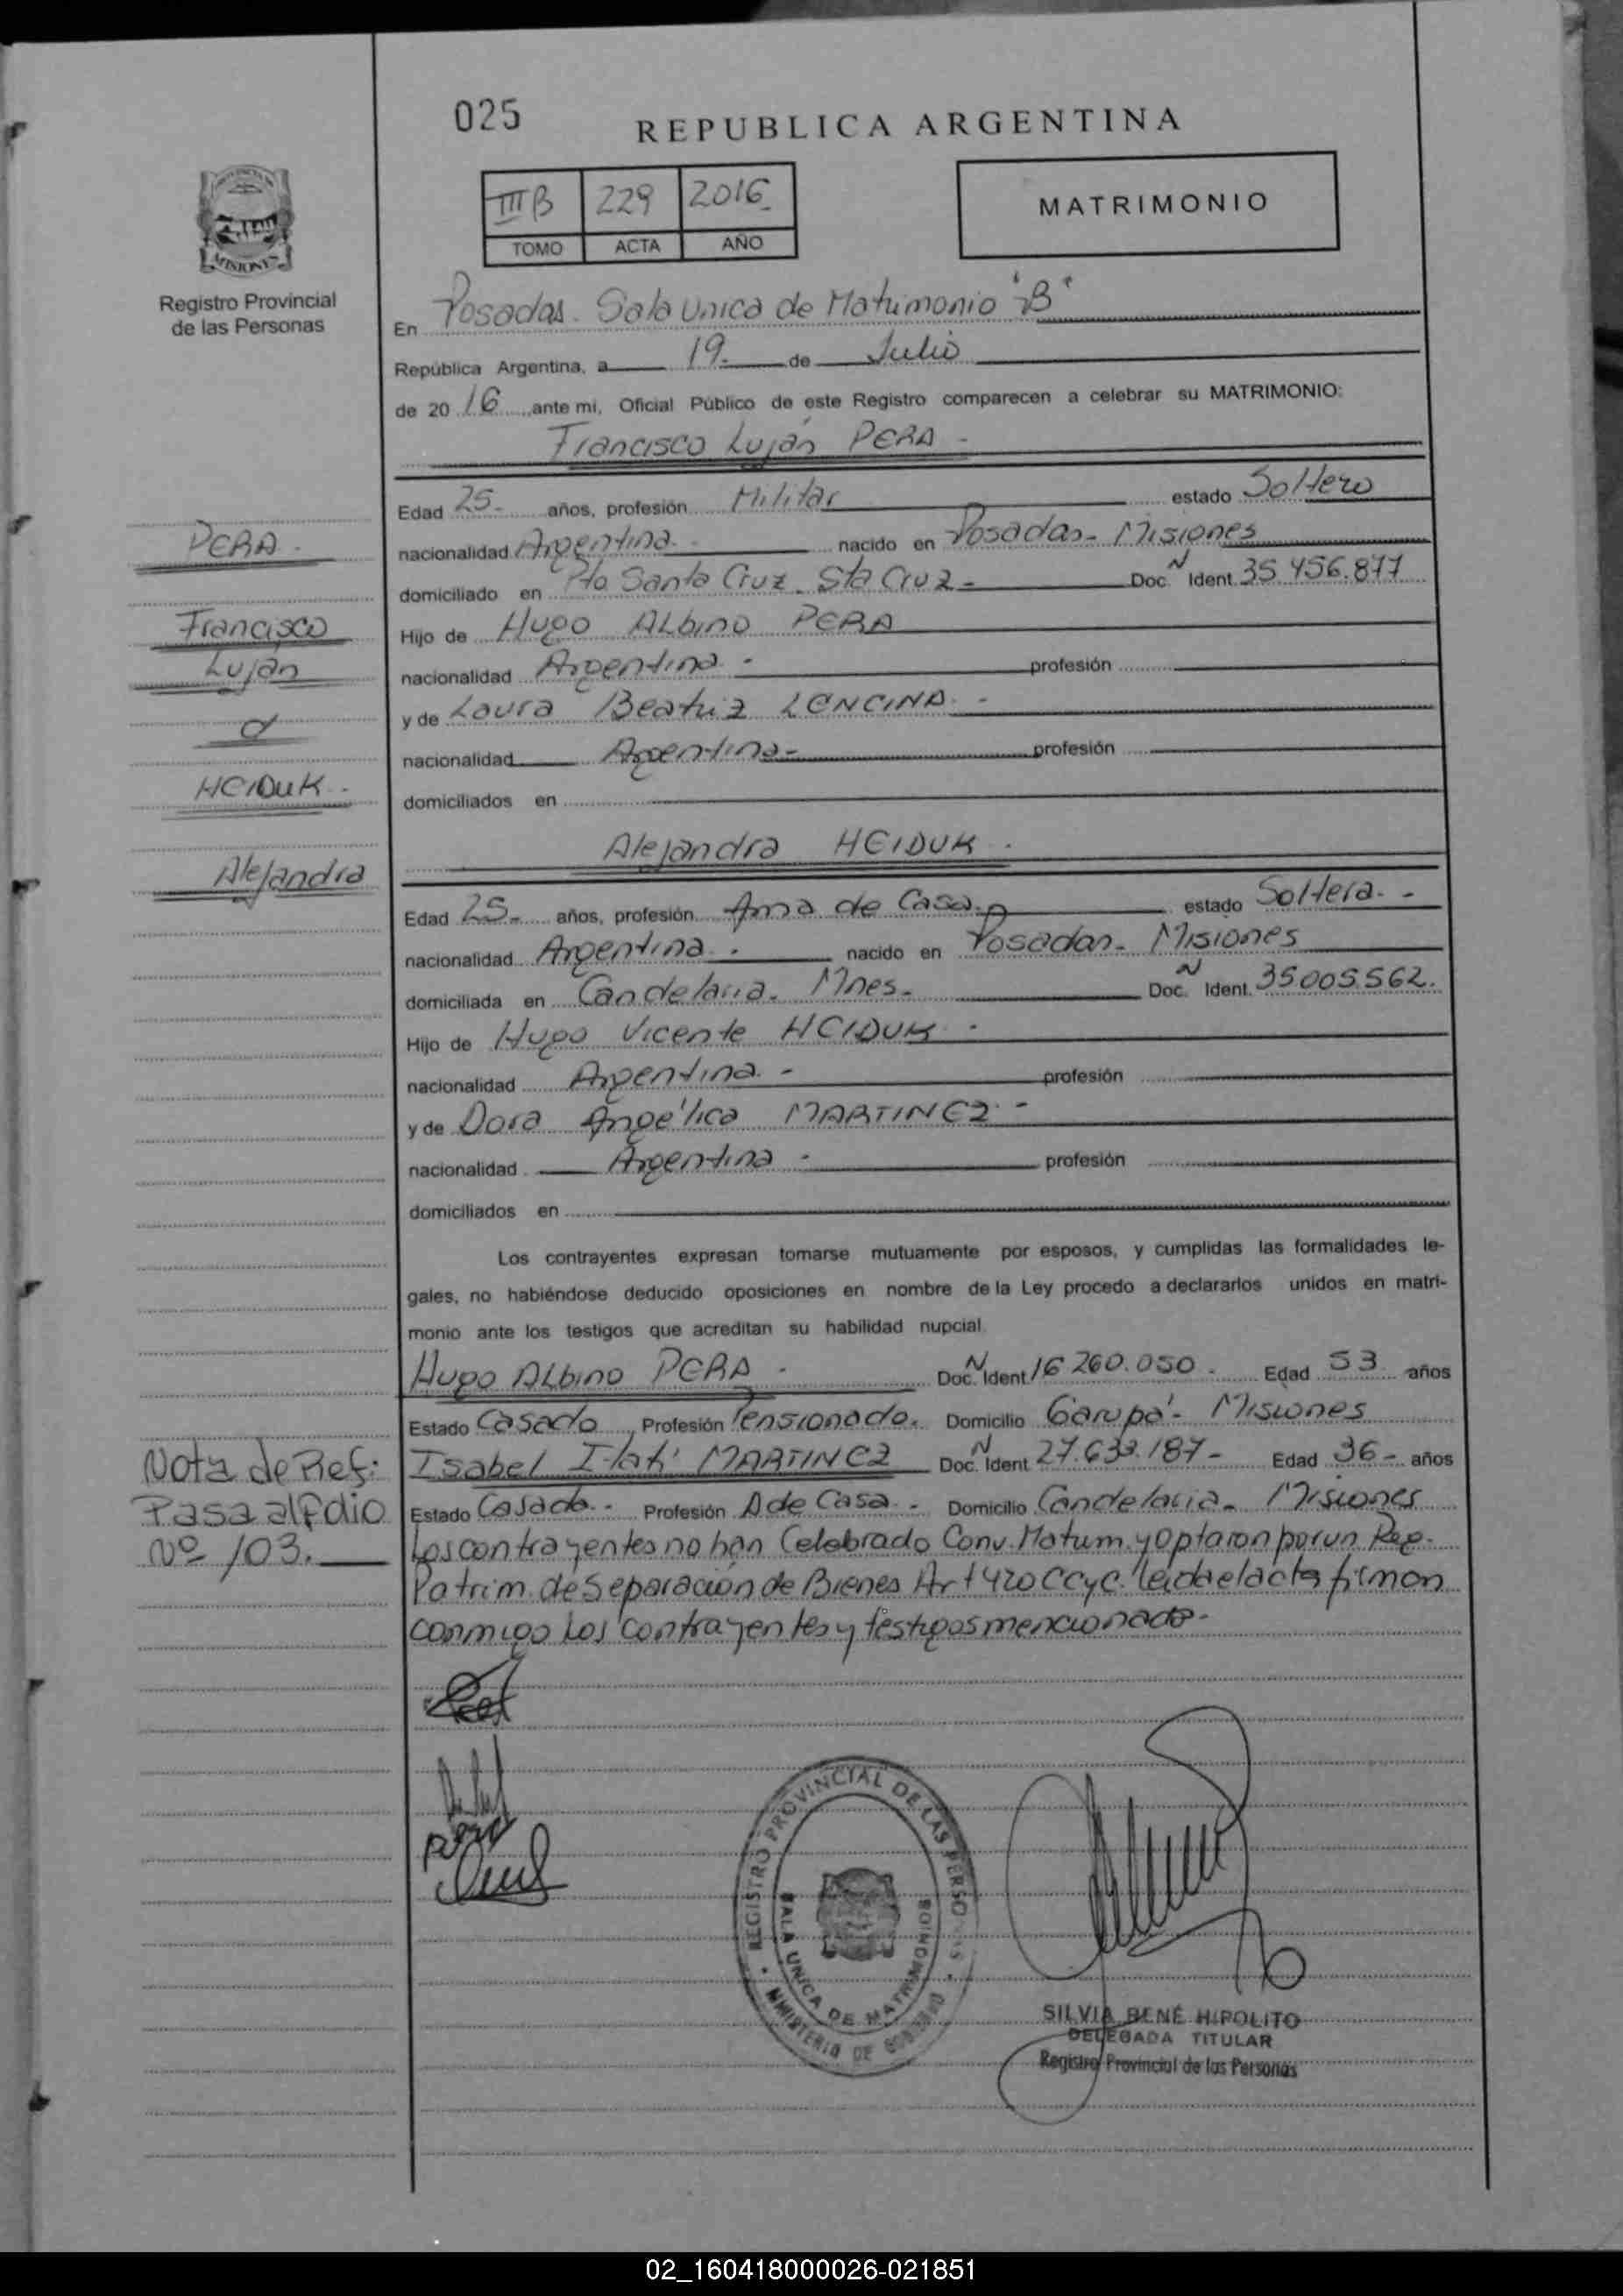 025
REPUBLICA ARGENTINA
IIIB 229 2016
TOMO ACTA AÑO
MATRIMONIO
MISIONES
Registro Provincial
de las Personas
En Posadas. Sala Unica de Matrimonio "B"
República Argentina, a 19 de Julio
de 2016 ante mi, Oficial Público de este Registro comparecen a celebrar su MATRIMONIO:
Francisco Luján PERA -
Edad 25 - años, profesión Militar estado Soltero
PERA -
nacionalidad Argentina nacido en Posadas - Misiones
domiciliado en Pto Santa Cruz. Sta Cruz - Doc. N Ident. 35.456.877
Francisco
Hijo de Hugo Albino PERA
Luján
nacionalidad Argentina - profesión
y de Laura Beatriz LENCINA -
nacionalidad Argentina - profesión
HEIDUK -
domiciliados en
Alejandra HEIDUK -
Alejandra
Edad 25 - años, profesión Ama de Casa. estado Soltera. -
nacionalidad Argentina. nacido en Posadas - Misiones
domiciliada en Candelaria. Mnes. Doc. N Ident. 35005.562.
Hijo de Hugo Vicente HEIDUK -
nacionalidad Argentina. - profesión
y de Dora Angélica MARTINEZ -
nacionalidad Argentina - profesión
domiciliados en
Los contrayentes expresan tomarse mutuamente por esposos, y cumplidas las formalidades le-
gales, no habiéndose deducido oposiciones en nombre de la Ley procedo a declararlos unidos en matri-
monio ante los testigos que acreditan su habilidad nupcial.
Hugo Albino PERA - Doc. N Ident 16.260.050 - Edad 53 años
Estado Casado Profesión Pensionado. Domicilio Garupá - Misiones
Nota de Ref:
Isabel Itatí MARTINEZ Doc. N Ident 27.633.187 - Edad 36 - años
Pasa al Folio
Estado Casada - Profesión A de Casa - Domicilio Candelaria - Misiones
Nº 103.
Los contrayentes no han Celebrado Conv. Matrim. y optaron por un Reg.
Patrim. de Separación de Bienes Art 420 CCyC. leida el acta firman
conmigo Los contrayentes y testigos mencionado -
REGISTRO PROVINCIAL DE LAS PERSONAS
SALA UNICA DE MATRIMONIOS
MINISTERIO DE GOBIERNO
SILVIA BENÉ HIPOLITO
DELEGADA TITULAR
Registro Provincial de las Personas
02_160418000026-021851